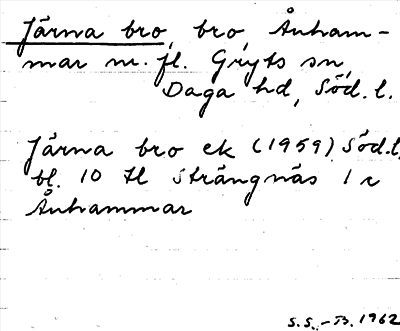 Järna bro, bro, Ånham-
mar nr. fl. Gryts sn,
Daga hd, Söd. l.
Järna bro ek (1959) Söd. l,
bl. 10 tl Strängnäs 1 c
Ånhammar
S.S. - B. 1962